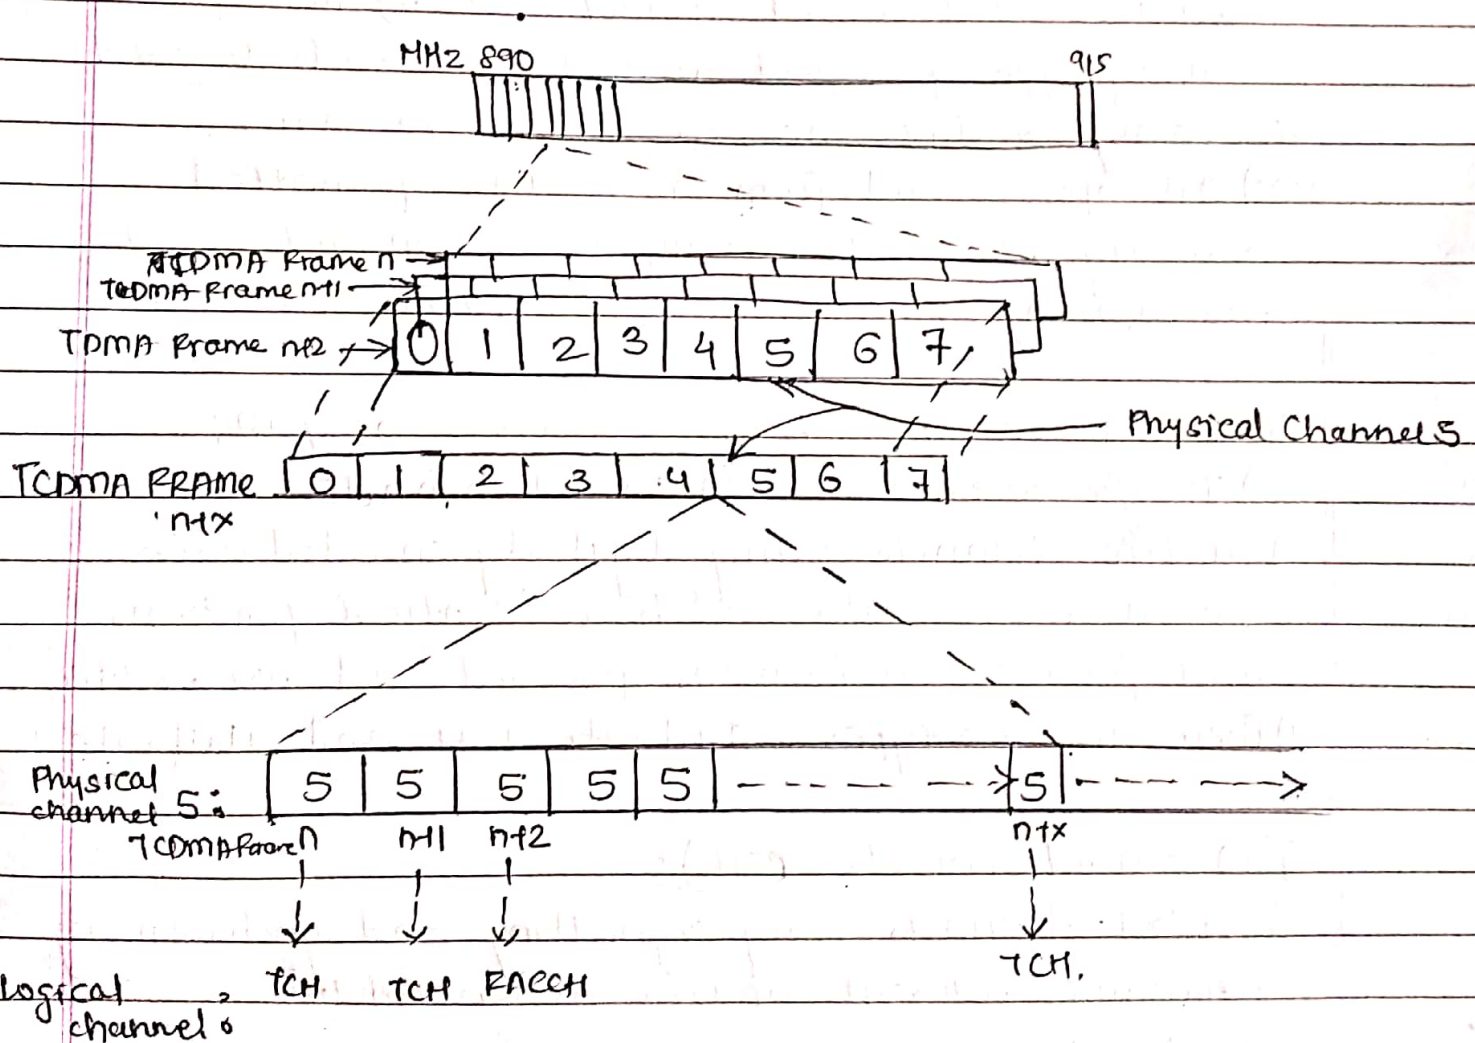 MHz 890 915
TDMA Frame n
TDMA Frame n+1
TDMA Frame n+2 0 1 2 3 4 5 6 7
Physical Channel 5
TCDMA FRAME 0 1 2 3 4 5 6 7
n+x
Physical
channel 5: 5 5 5 5 5 5
TCDMA Frame n n+1 n+2 n+x
TCH TCH FACCH TCH.
Logical
channel: